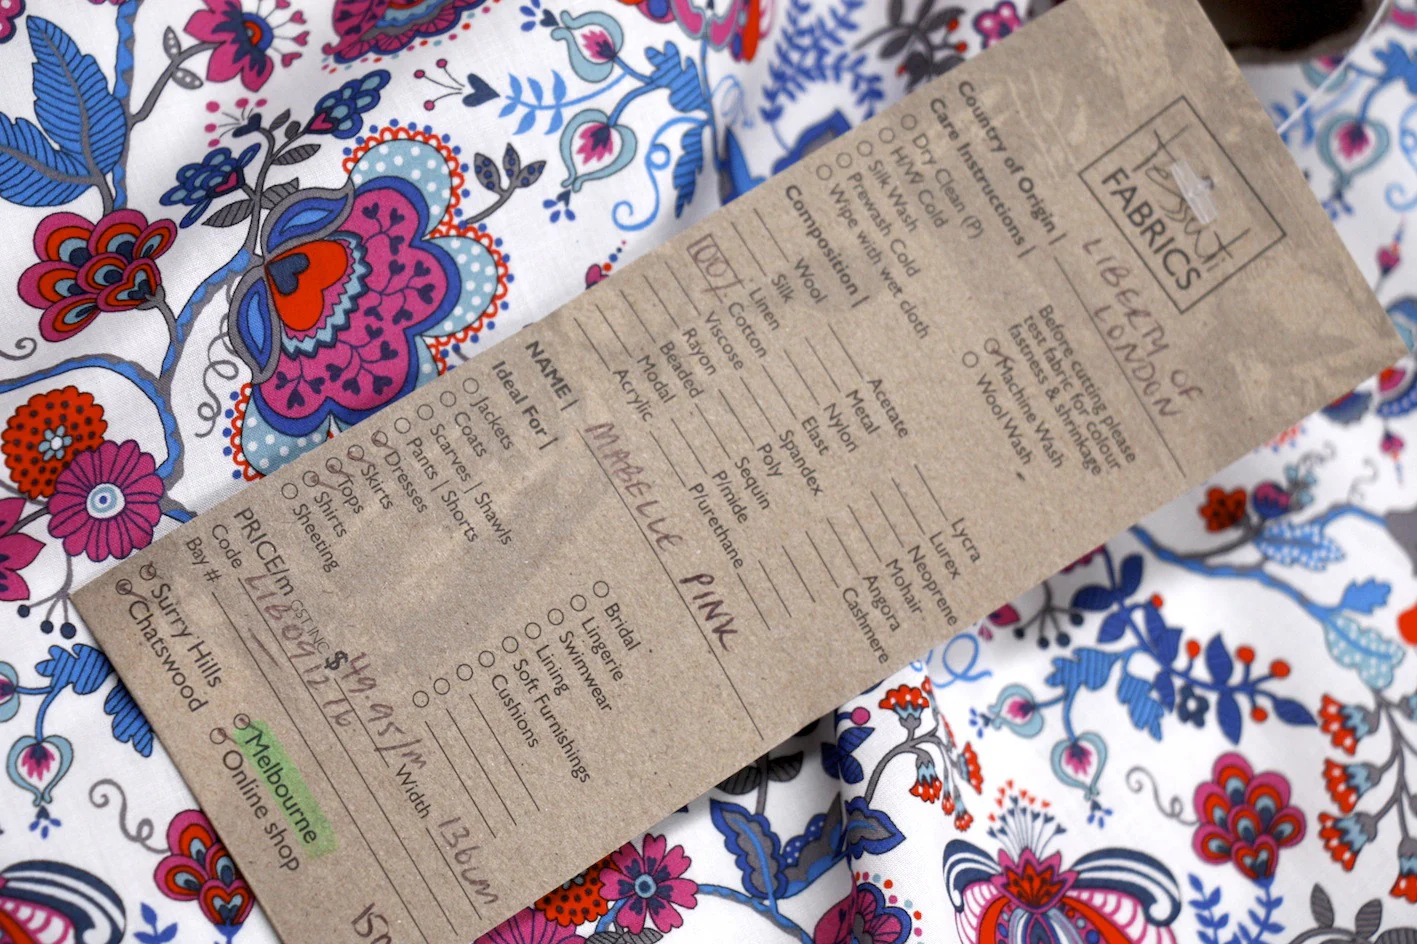 Tessuti
FABRICS
Country of Origin | LIBERTY OF
LONDON
Care Instructions |
Dry Clean (P)
H/W Cold
Silk Wash
Prewash Cold
Wipe with wet cloth
Before cutting please
test fabric for colour
fastness & shrinkage
Machine Wash
Wool Wash
Composition |
Wool
Silk
Linen
100% Cotton
Viscose
Rayon
Beaded
Modal
Acrylic
Acetate
Metal
Nylon
Elast
Spandex
Poly
Sequin
P/mide
P/urethane
Lycra
Lurex
Neoprene
Mohair
Angora
Cashmere
NAME | MABELLE PINK
Ideal For |
Jackets
Coats
Scarves | Shawls
Pants | Shorts
Dresses
Skirts
Tops
Shirts
Sheeting
Bridal
Lingerie
Swimwear
Lining
Soft Furnishings
Cushions
PRICE/m GST INC $ 49.95/m Width 136cm
Code LIB0912716
Bay #
Surry Hills
Chatswood
Melbourne
Online shop